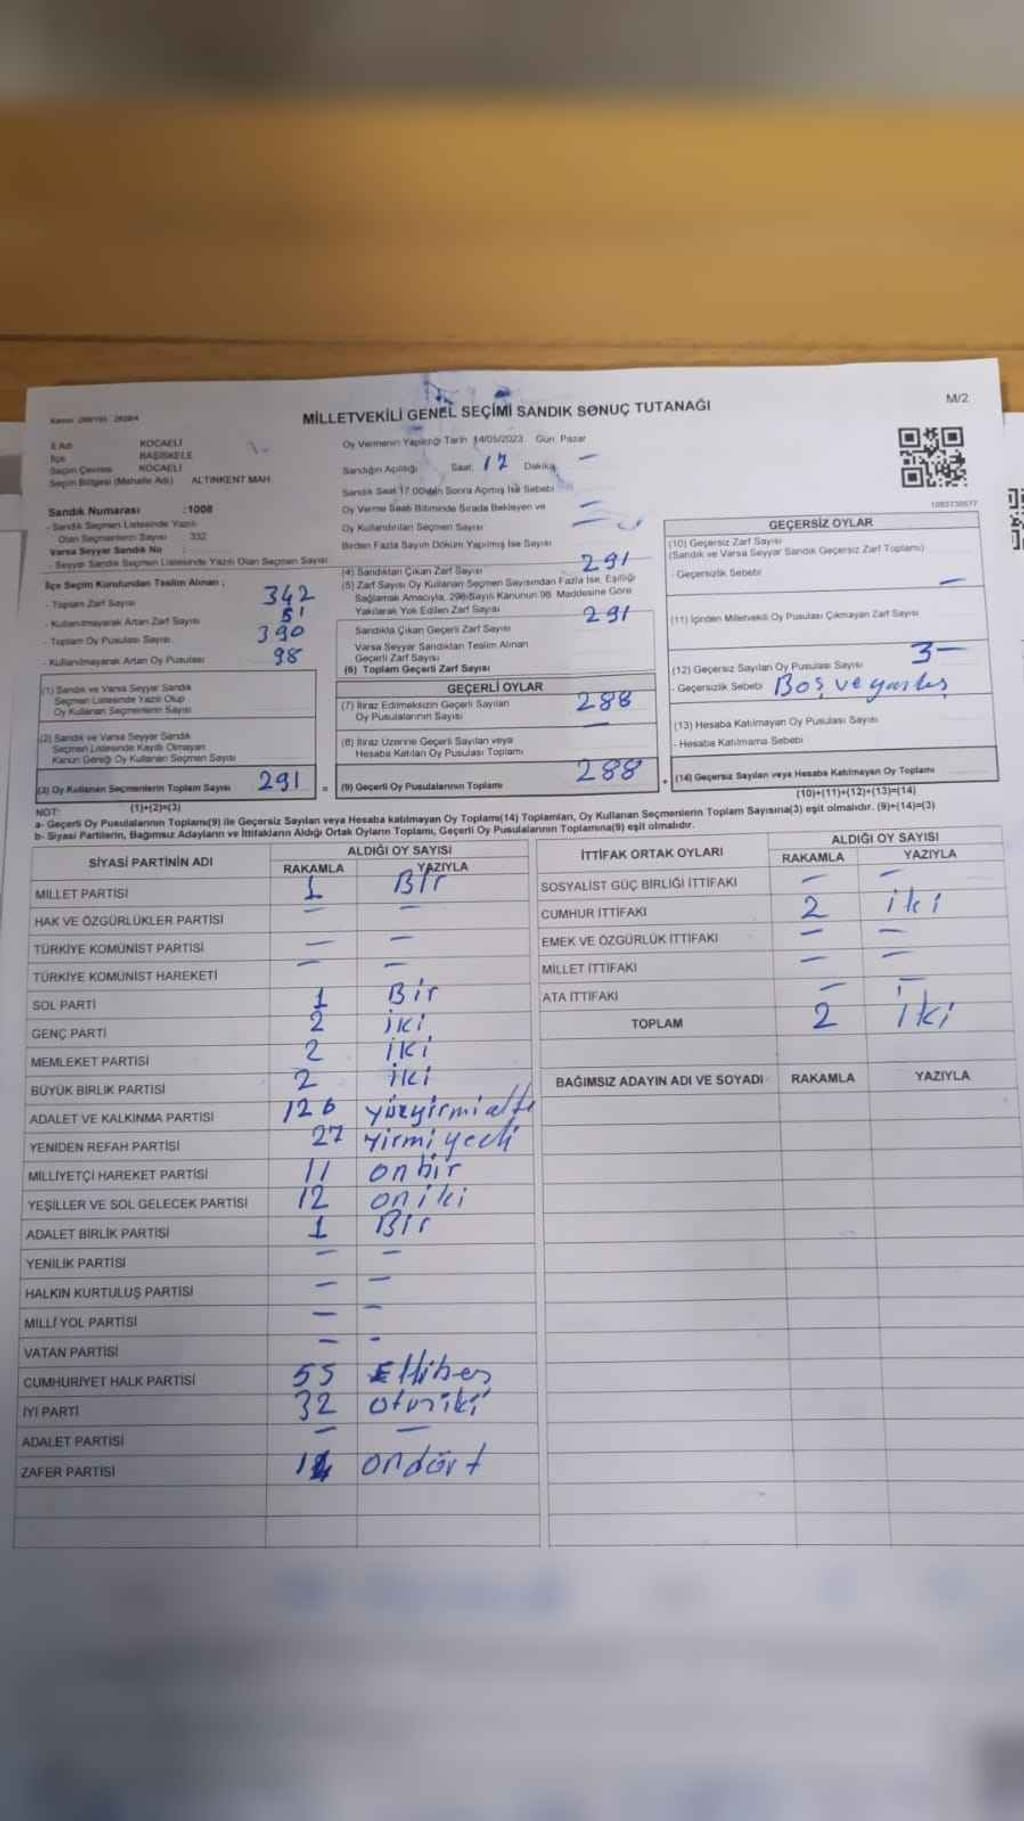 MİLLETVEKİLİ GENEL SEÇİMİ SANDIK SONUÇ TUTANAĞI
M/2
İl Adı KOCAELİ
İlçe BAŞİSKELE
Seçim Çevresi KOCAELİ
Seçim Bölgesi (Mahalle Adı) ALTINKENT MAH.
Sandık Numarası : 1008
- Sandık Seçmen Listesinde Yazılı
Olan Seçmenlerin Sayısı 332
Varsa Seyyar Sandık No
- Seyyar Sandık Seçmen Listesinde Yazılı Olan Seçmen Sayısı
İlçe Seçim Kurulundan Teslim Alınan ;
- Toplam Zarf Sayısı 342
- Kullanılmayarak Artan Zarf Sayısı 51
- Toplam Oy Pusulası Sayısı 390
- Kullanılmayarak Artan Oy Pusulası 98
(1) Sandık ve Varsa Seyyar Sandık
Seçmen Listesinde Yazılı Olup
Oy Kullanan Seçmenlerin Sayısı
(2) Sandık ve Varsa Seyyar Sandık
Seçmen Listesinde Kayıtlı Olmayan
Kanun Gereği Oy Kullanan Seçmen Sayısı
(3) Oy Kullanan Seçmenlerin Toplam Sayısı 291 =
(1)+(2)=(3)
Oy Vermenin Yapıldığı Tarih 14/05/2023 Gün Pazar
Sandığın Açıldığı Saat: 17 Dakika –
Sandık Saat 17.00'den Sonra Açılmış İse Sebebi
Oy Verme Saati Bitiminde Sırada Bekleyen ve
Oy Kullandırılan Seçmen Sayısı
Birden Fazla Sayım Döküm Yapılmış İse Sayısı
(4) Sandıktan Çıkan Zarf Sayısı 291
(5) Zarf Sayısı Oy Kullanan Seçmen Sayısından Fazla İse, Eşitliği
Sağlamak Amacıyla, 298 Sayılı Kanunun 98. Maddesine Göre
Yakılarak Yok Edilen Zarf Sayısı
Sandıkta Çıkan Geçerli Zarf Sayısı 291
Varsa Seyyar Sandıktan Teslim Alınan
Geçerli Zarf Sayısı
(6) Toplam Geçerli Zarf Sayısı
GEÇERLİ OYLAR
(7) İtiraz Edilmeksizin Geçerli Sayılan
Oy Pusulalarının Sayısı 288
(8) İtiraz Üzerine Geçerli Sayılan veya
Hesaba Katılan Oy Pusulası Toplamı –
(9) Geçerli Oy Pusulalarının Toplamı 288 +
GEÇERSİZ OYLAR
(10) Geçersiz Zarf Sayısı
(Sandık ve Varsa Seyyar Sandık Geçersiz Zarf Toplamı)
- Geçersizlik Sebebi –
(11) İçinden Milletvekili Oy Pusulası Çıkmayan Zarf Sayısı
(12) Geçersiz Sayılan Oy Pusulası Sayısı 3 –
- Geçersizlik Sebebi Boş ve yanlış
(13) Hesaba Katılmayan Oy Pusulası Sayısı
- Hesaba Katılmama Sebebi
(14) Geçersiz Sayılan veya Hesaba Katılmayan Oy Toplamı
(10)+(11)+(12)+(13)=(14)
NOT:
a- Geçerli Oy Pusulalarının Toplamı(9) ile Geçersiz Sayılan veya Hesaba katılmayan Oy Toplamı(14) Toplamları, Oy Kullanan Seçmenlerin Toplam Sayısına(3) eşit olmalıdır. (9)+(14)=(3)
b- Siyasi Partilerin, Bağımsız Adayların ve İttifakların Aldığı Ortak Oyların Toplamı, Geçerli Oy Pusulalarının Toplamına(9) eşit olmalıdır.
SİYASİ PARTİNİN ADI ALDIĞI OY SAYISI
RAKAMLA YAZIYLA
MİLLET PARTİSİ 1 Bir
HAK VE ÖZGÜRLÜKLER PARTİSİ – –
TÜRKİYE KOMÜNİST PARTİSİ – –
TÜRKİYE KOMÜNİST HAREKETİ – –
SOL PARTİ 1 Bir
GENÇ PARTİ 2 iki
MEMLEKET PARTİSİ 2 iki
BÜYÜK BİRLİK PARTİSİ 2 iki
ADALET VE KALKINMA PARTİSİ 126 yüzyirmialtı
YENİDEN REFAH PARTİSİ 27 yirmiyedi
MİLLİYETÇİ HAREKET PARTİSİ 11 onbir
YEŞİLLER VE SOL GELECEK PARTİSİ 12 oniki
ADALET BİRLİK PARTİSİ 1 Bir
YENİLİK PARTİSİ – –
HALKIN KURTULUŞ PARTİSİ – –
MİLLİ YOL PARTİSİ – –
VATAN PARTİSİ – -
CUMHURİYET HALK PARTİSİ 55 Ellibeş
İYİ PARTİ 32 otuziki
ADALET PARTİSİ – –
ZAFER PARTİSİ 14 ondört
İTTİFAK ORTAK OYLARI ALDIĞI OY SAYISI
RAKAMLA YAZIYLA
SOSYALİST GÜÇ BİRLİĞİ İTTİFAKI – –
CUMHUR İTTİFAKI 2 iki
EMEK VE ÖZGÜRLÜK İTTİFAKI – –
MİLLET İTTİFAKI – –
ATA İTTİFAKI – –
TOPLAM 2 iki
BAĞIMSIZ ADAYIN ADI VE SOYADI RAKAMLA YAZIYLA